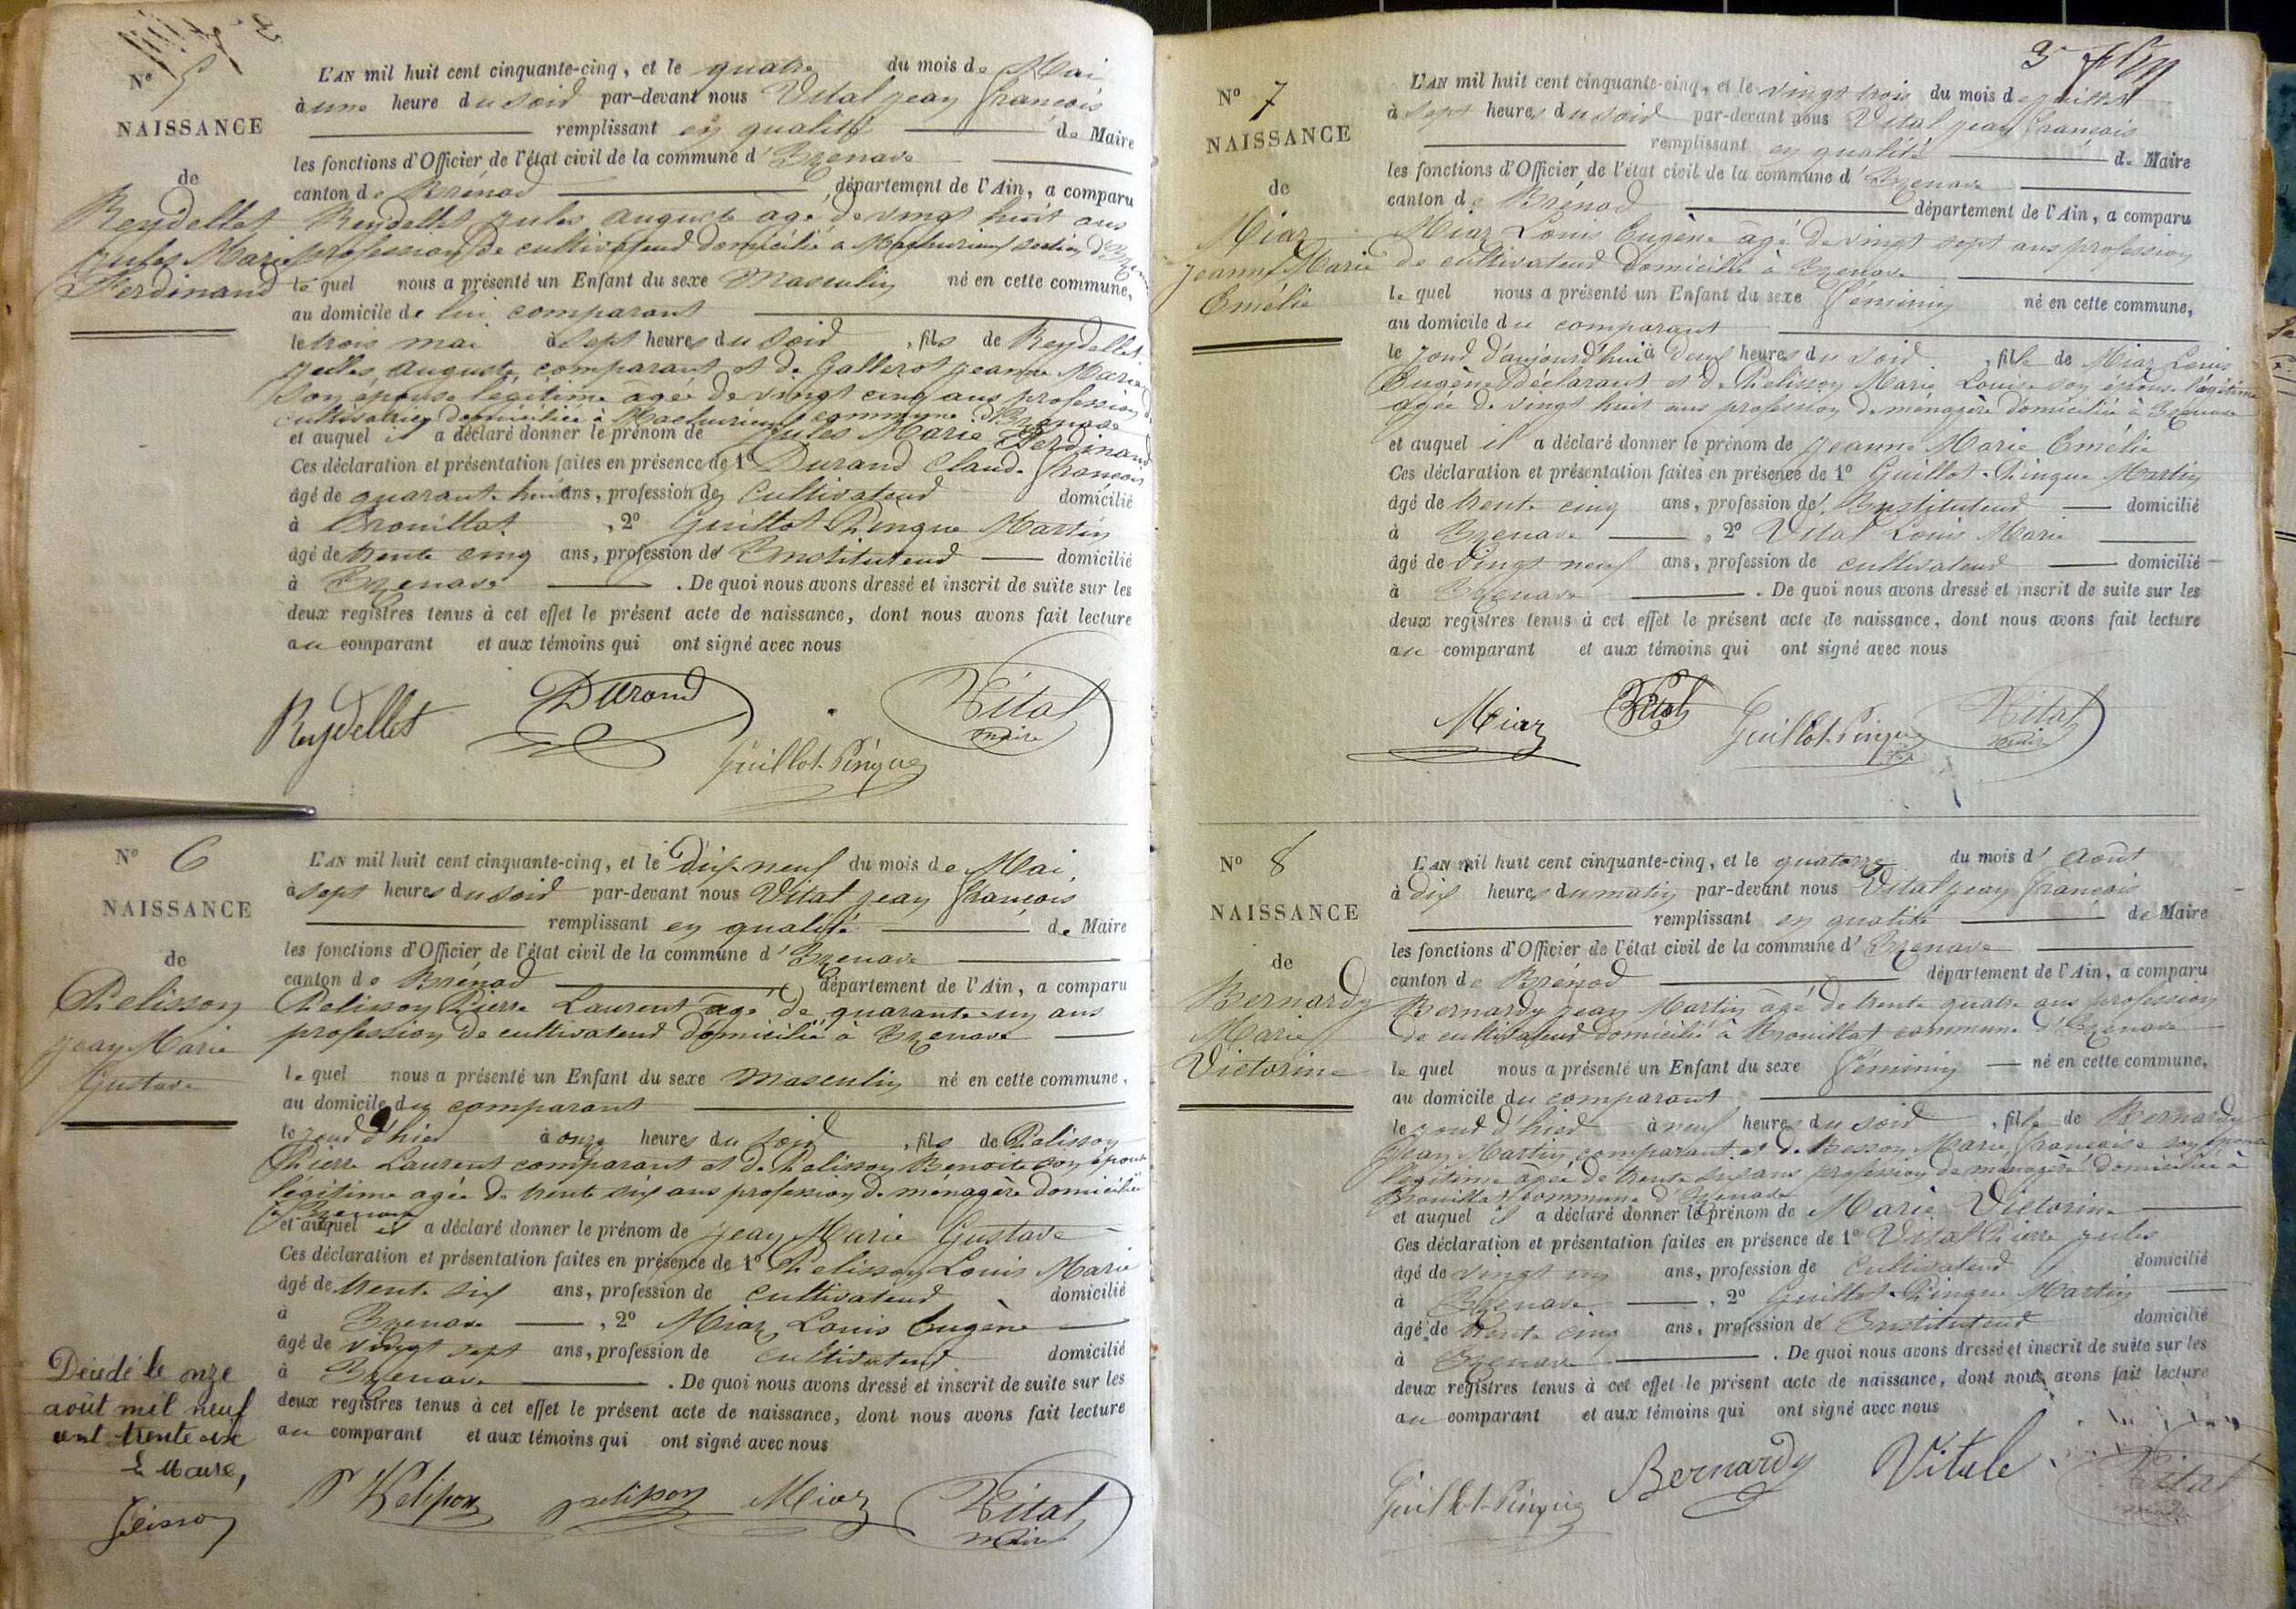 N° 5
NAISSANCE
de
Reydellet
Jules Marie
Ferdinand
L'AN mil huit cent cinquante-cinq, et le quatre du mois de Mai
à une heure du soir par-devant nous Vital Jean François
remplissant en qualité de Maire
les fonctions d'Officier de l'état civil de la commune d'Izenave
canton de Brénod département de l'Ain, a comparu
Reydellet Jules Auguste âgé de vingt huit ans
profession de cultivateur domicilié à Machurieux section d'Izenave
le quel nous a présenté un Enfant du sexe Masculin né en cette commune,
au domicile de lui comparant
le trois mai à sept heures du soir, fils de Reydellet
Jules Auguste comparant et de Gallerot Jeanne Marie
son épouse légitime âgé de vingt cinq ans profession de
cultivatrice domiciliée à Machurieux commune d'Izenave
et auquel il a déclaré donner le prénom de Jules Marie Ferdinand
Ces déclaration et présentation faites en présence de 1° Durand Claude François
âgé de quarante huit ans, profession de Cultivateur domicilié
à Crouillat, 2° Guillot Pingue Martin
âgé de trente cinq ans, profession de Instituteur domicilié
à Izenave. De quoi nous avons dressé et inscrit de suite sur les
deux registres tenus à cet effet le présent acte de naissance, dont nous avons fait lecture
au comparant et aux témoins qui ont signé avec nous
Reydellet Durand Vital
maire
Guillot-Pingue
N° 6
NAISSANCE
de
Pelisson
Jean Marie
Gustave
L'AN mil huit cent cinquante-cinq, et le Dix-neuf du mois de Mai,
à sept heures du soir par-devant nous Vital Jean François
remplissant en qualité de Maire
les fonctions d'Officier de l'état civil de la commune d'Izenave
canton de Brénod département de l'Ain, a comparu
Pelisson Pierre Laurent âgé de quarante-un ans
profession de cultivateur domicilié à Izenave
le quel nous a présenté un Enfant du sexe Masculin né en cette commune,
au domicile du comparant
le jour d'hier à onze heures du soir, fils de Pelisson
Pierre Laurent comparant et de Pelisson Benoite son épouse
légitime agée de trente six ans profession de ménagère domiciliée
à Izenave
et auquel il a déclaré donner le prénom de Jean Marie Gustave
Ces déclaration et présentation faites en présence de 1° Pelisson Louis Marie
âgé de trente six ans, profession de Cultivateur domicilié
à Izenave, 2° Miaz Louis Eugène
âgé de vingt sept ans, profession de cultivateur domicilié
à Izenave. De quoi nous avons dressé et inscrit de suite sur les
deux registres tenus à cet effet le présent acte de naissance, dont nous avons fait lecture
au comparant et aux témoins qui ont signé avec nous
P Pelisson pelisson Miaz Vital
maire
Décédé le onze
août mil neuf
cent trente six
Le Maire,
N° 7
NAISSANCE
de
Miaz
Jeanne Marie
Emélie
3
L'AN mil huit cent cinquante-cinq, et le vingt trois du mois de juillet
à sept heures du soir par-devant nous Vital Jean François
remplissant en qualité de Maire
les fonctions d'Officier de l'état civil de la commune d'Izenave
canton de Brénod département de l'Ain, a comparu
Miaz Louis Eugène âgé de vingt sept ans profession
de cultivateur domicilié à Izenave
le quel nous a présenté un Enfant du sexe Féminin né en cette commune,
au domicile du comparant
le jour d'aujourd'hui à deux heures du soir, fille de Miaz Louis
Eugène déclarant et de Pelisson Marie Louise son épouse légitime
agée de vingt huit ans profession de ménagère domiciliée à Izenave
et auquel il a déclaré donner le prénom de Jeanne Marie Emélie
Ces déclaration et présentation faites en présence de 1° Guillot-Pingue Martin
âgé de trente cinq ans, profession d'Instituteur domicilié
à Izenave, 2° Vital Louis Marie
âgé de vingt neuf ans, profession de cultivateur domicilié
à Izenave. De quoi nous avons dressé et inscrit de suite sur les
deux registres tenus à cet effet le présent acte de naissance, dont nous avons fait lecture
au comparant et aux témoins qui ont signé avec nous
Miaz Vital Guillot-Pingue Vital
maire
N° 8
NAISSANCE
de
Bernardy
Marie
Victorine
L'AN mil huit cent cinquante-cinq, et le quatorze du mois d'Août
à dix heures du matin par-devant nous Vital Jean François
remplissant en qualité de Maire
les fonctions d'Officier de l'état civil de la commune d'Izenave
canton de Brénod département de l'Ain, a comparu
Bernardy Jean Martin âgé de trente quatre ans profession
de cultivateur domicilié à Crouillat commune d'Izenave
le quel nous a présenté un Enfant du sexe Féminin né en cette commune,
au domicile du comparant
le jour d'hier à neuf heures du soir, fille de Bernardy
Jean Martin comparant et de Besson Marie Françoise son épouse
légitime âgée de trente six ans profession de ménagère domiciliée à
Crouillat commune d'Izenave
et auquel il a déclaré donner le prénom de Marie Victorine
Ces déclaration et présentation faites en présence de 1° Vital Pierre Jules
âgé de vingt un ans, profession de Cultivateur domicilié
à Izenave, 2° Guillot-Pingue Martin
âgé de trente cinq ans, profession de Instituteur domicilié
à Izenave. De quoi nous avons dressé et inscrit de suite sur les
deux registres tenus à cet effet le présent acte de naissance, dont nous avons fait lecture
au comparant et aux témoins qui ont signé avec nous
Guillot-Pingue Bernardy Vitale Vital
maire